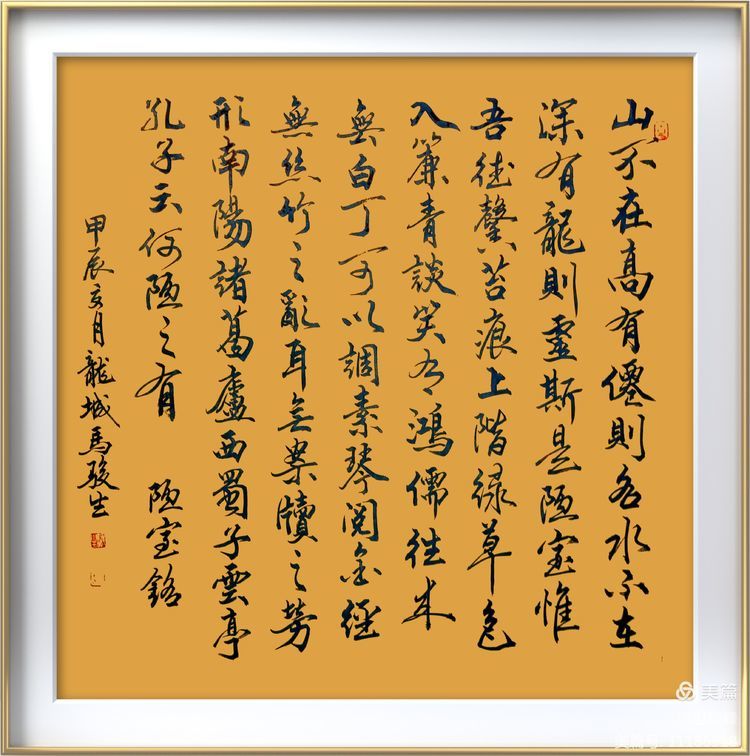 山不在高有僊則名水不在
深有龍則靈斯是陋室惟
吾德馨苔痕上階緑草色
入簾青談笑有鴻儒往来
無白丁可以調素琴閲金經
無絲竹之亂耳無案牘之勞
形南陽諸葛廬西蜀子雲亭
孔子云何陋之有 陋室銘
甲辰亥月龍城馬駿生
美篇